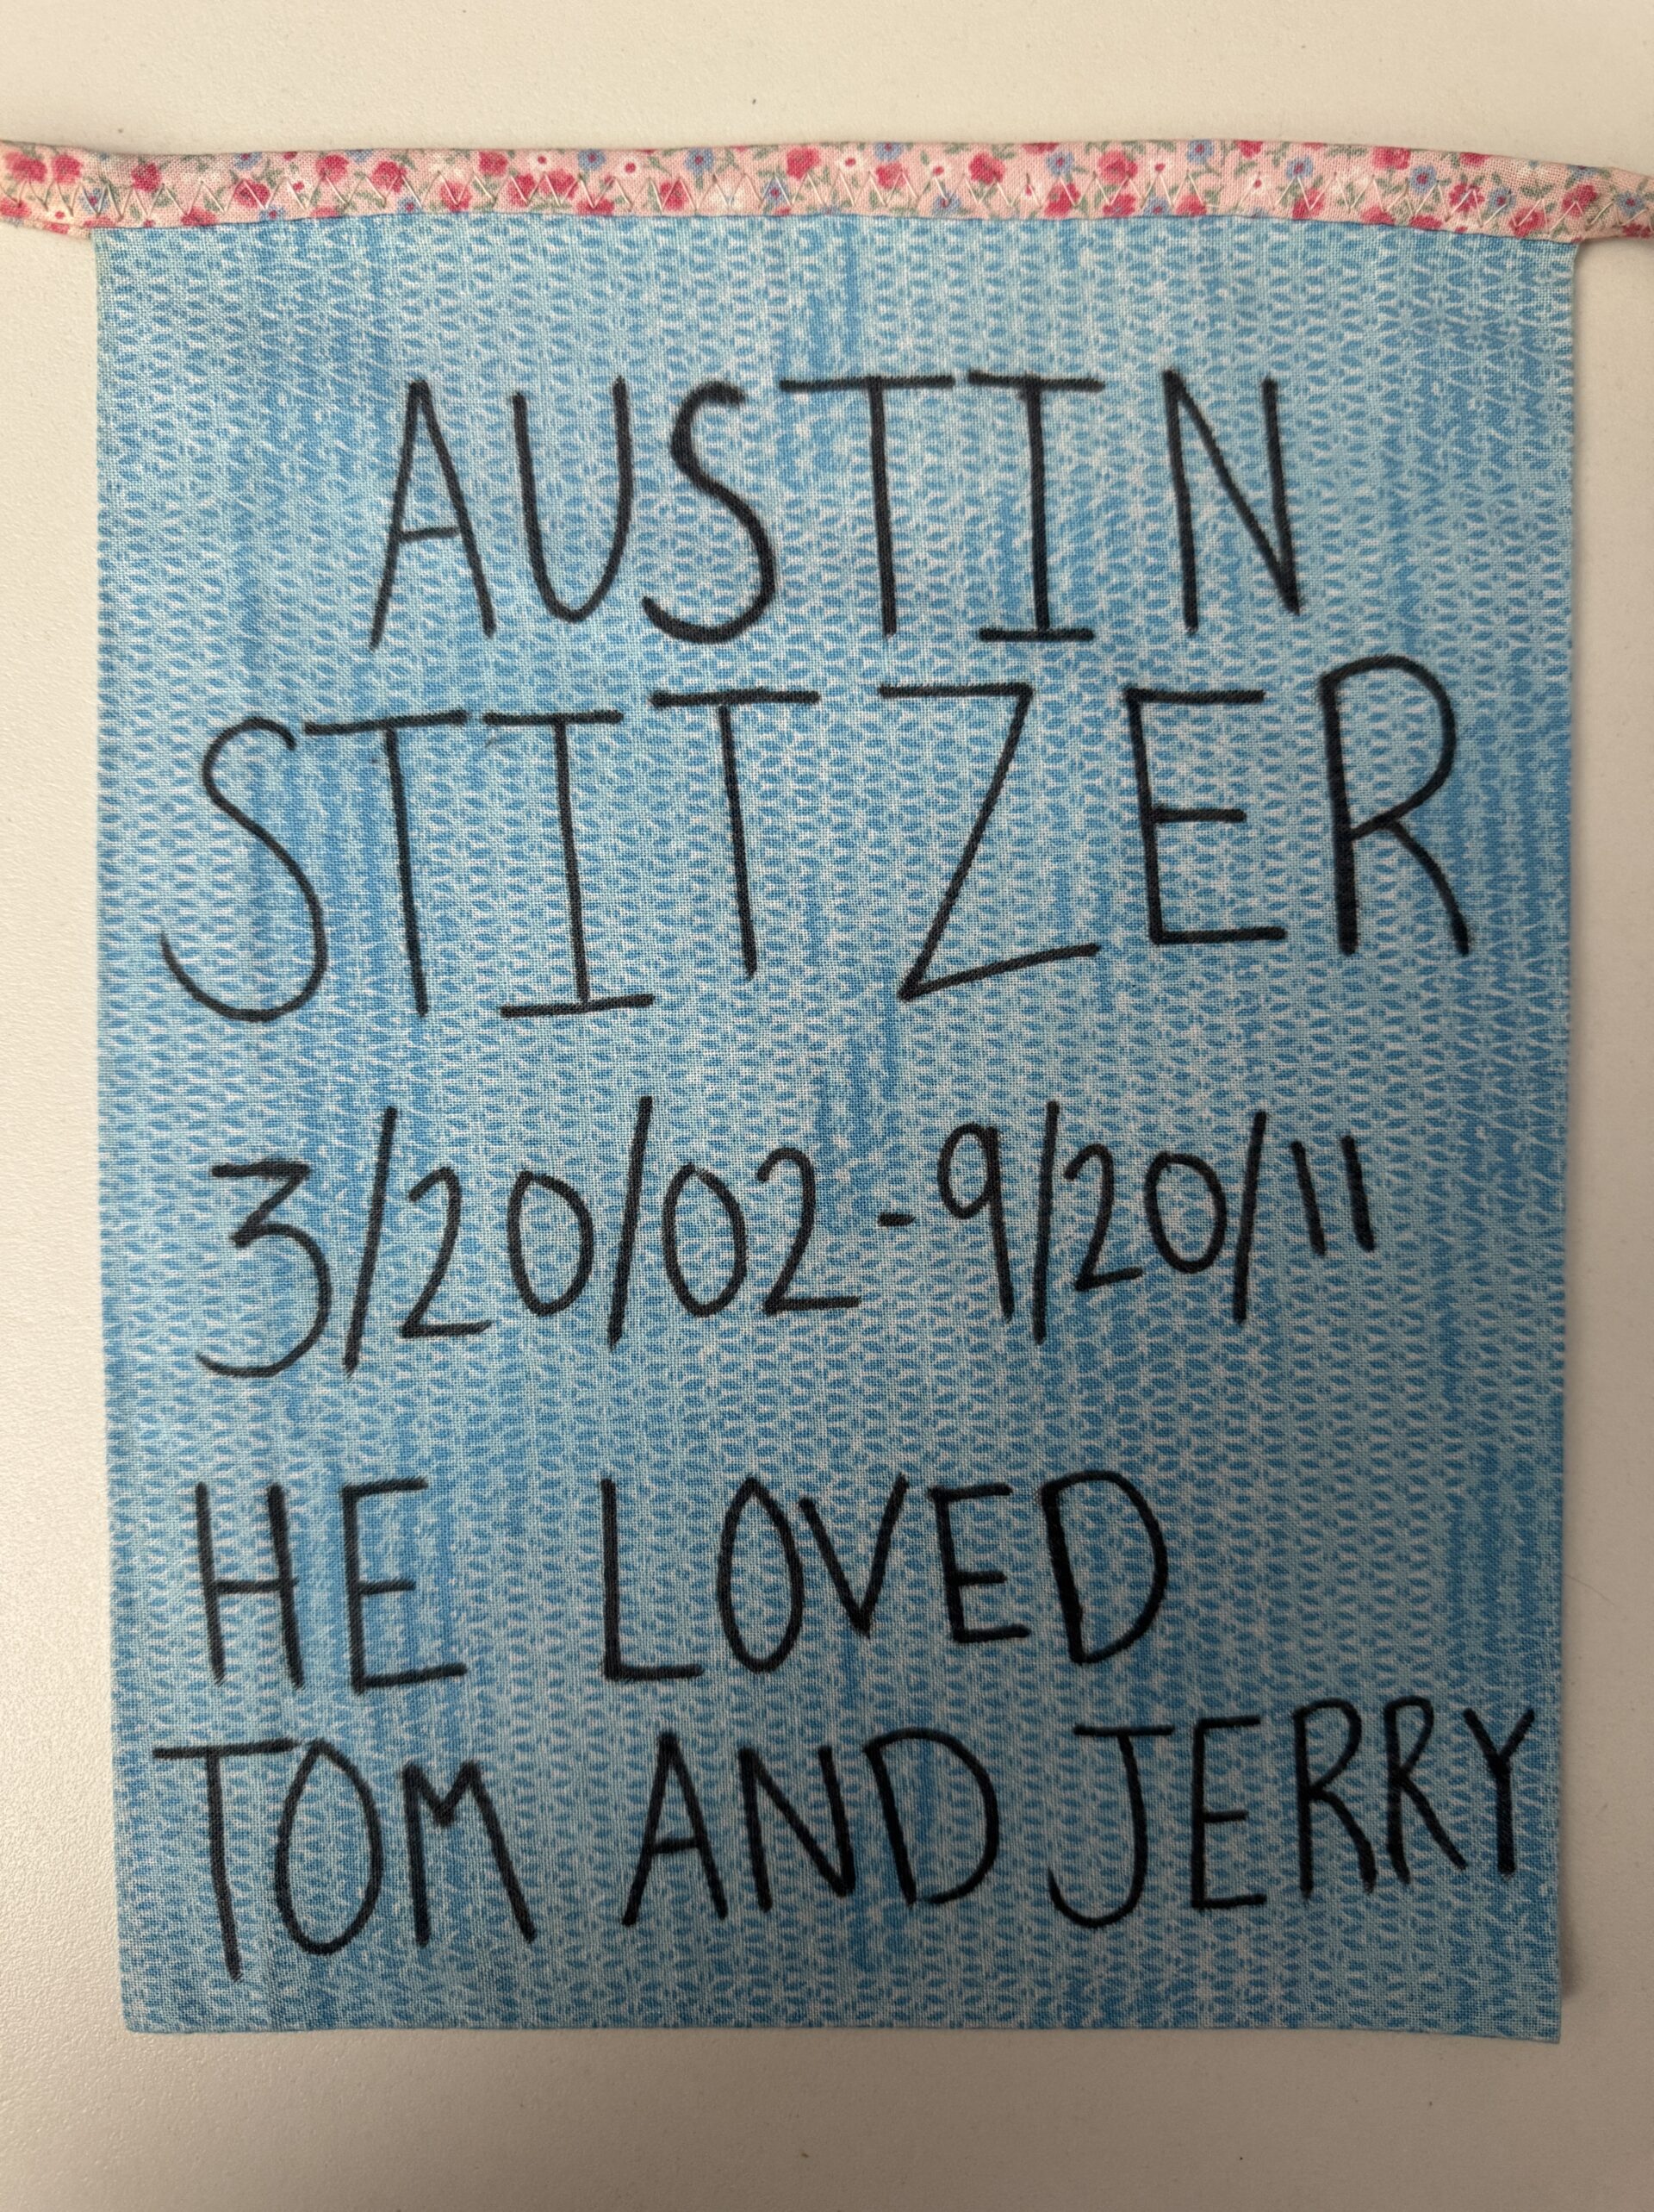 AUSTIN
STITZER
3/20/02-9/20/11
HE LOVED
TOM AND JERRY